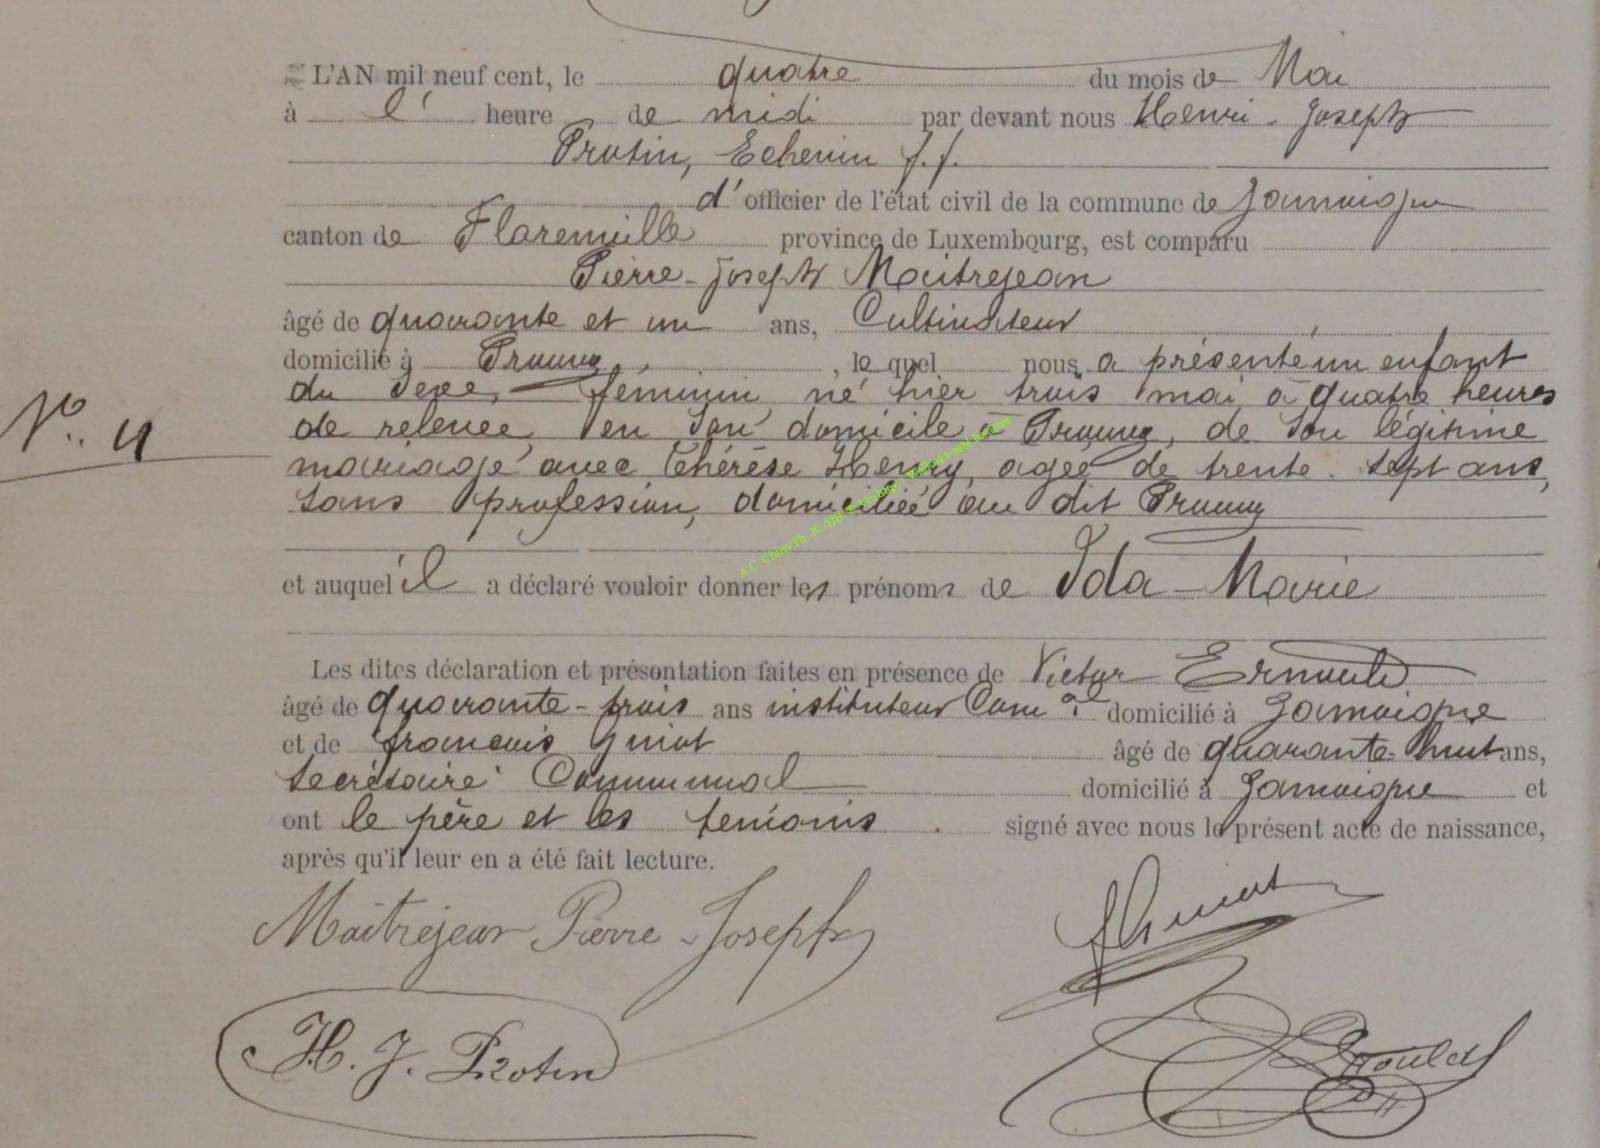 L'AN mil neuf cent, le quatre du mois de Mai
à l' heure de midi par devant nous Henri-Joseph
Protin, Echevin f.f.
d'officier de l'état civil de la commune de Jamoigne
canton de Florenville province de Luxembourg, est comparu
Pierre-Joseph Maitrejean
âgé de quarante et un ans, Cultivateur
domicilié à Prouvy, le quel nous a présenté un enfant
du sexe féminin né hier trois mai à quatre heures
de relevée, en son domicile à Prouvy, de son légitime
mariage avec Thérèse Henry, agée de trente-sept ans,
sans profession, domiciliée au dit Prouvy
et auquel il a déclaré vouloir donner les prénoms de Ida-Marie
Les dites déclaration et présentation faites en présence de Victor
âgé de quarante-trois ans instituteur Comal domicilié à Jamoigne
et de françois Guiot âgé de quarante-huit ans,
Secrétaire Communal domicilié à Jamoigne et
ont le père et les témoins signé avec nous le présent acte de naissance,
après qu'il leur en a été fait lecture.
N° 4
Maîtrejean Pierre-Joseph
F Guiot
H. J. Protin